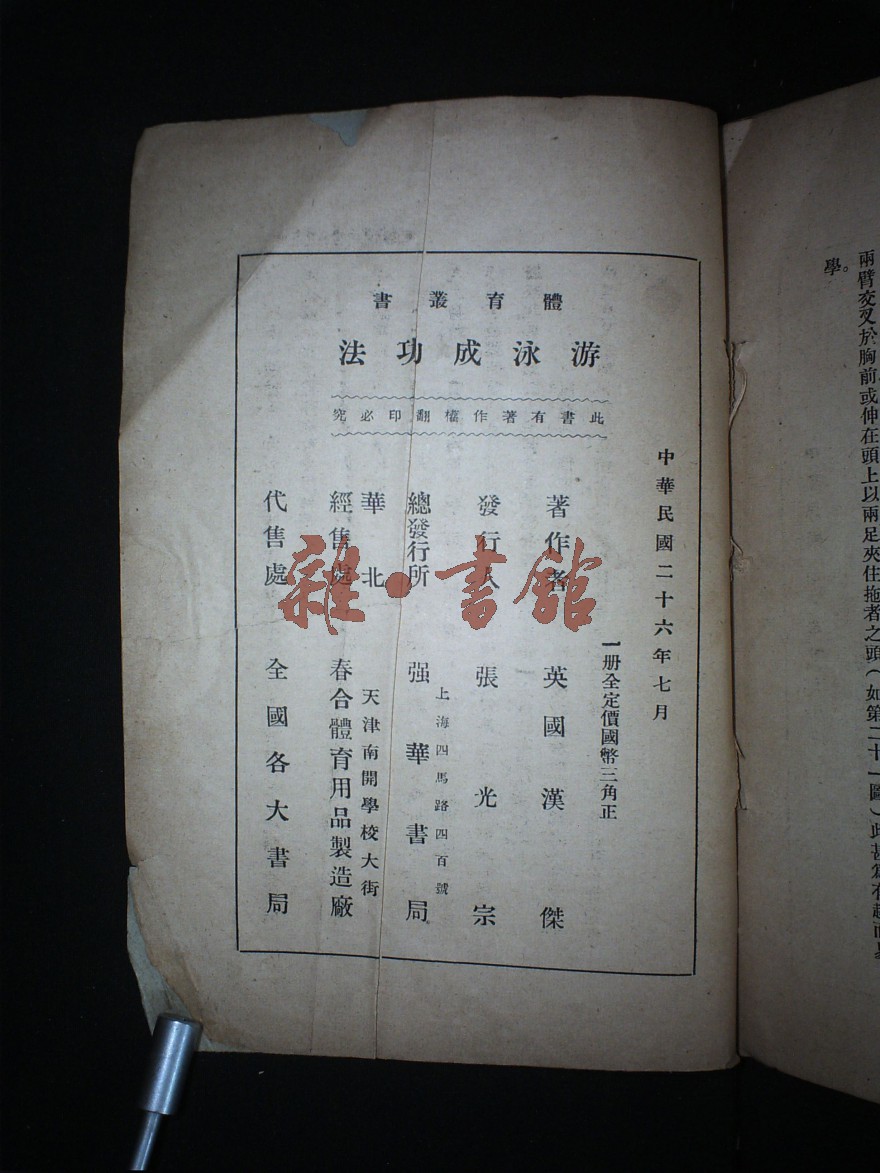 體育叢書
游泳成功法
此書有著作權翻印必究
中華民國二十六年七月
一册全定價國幣三角正
著作者 英國漢傑
發行人 張光宗
上海四馬路四百號
總發行所 强華書局
天津南開學校大街
華北經售處 春合體育用品製造廠
代售處 全國各大書局
雜·書館
兩臂交叉於胸前或伸在頭上以兩足夾住拖者之頭(如第二十一圖)此甚為有趣而易
學。